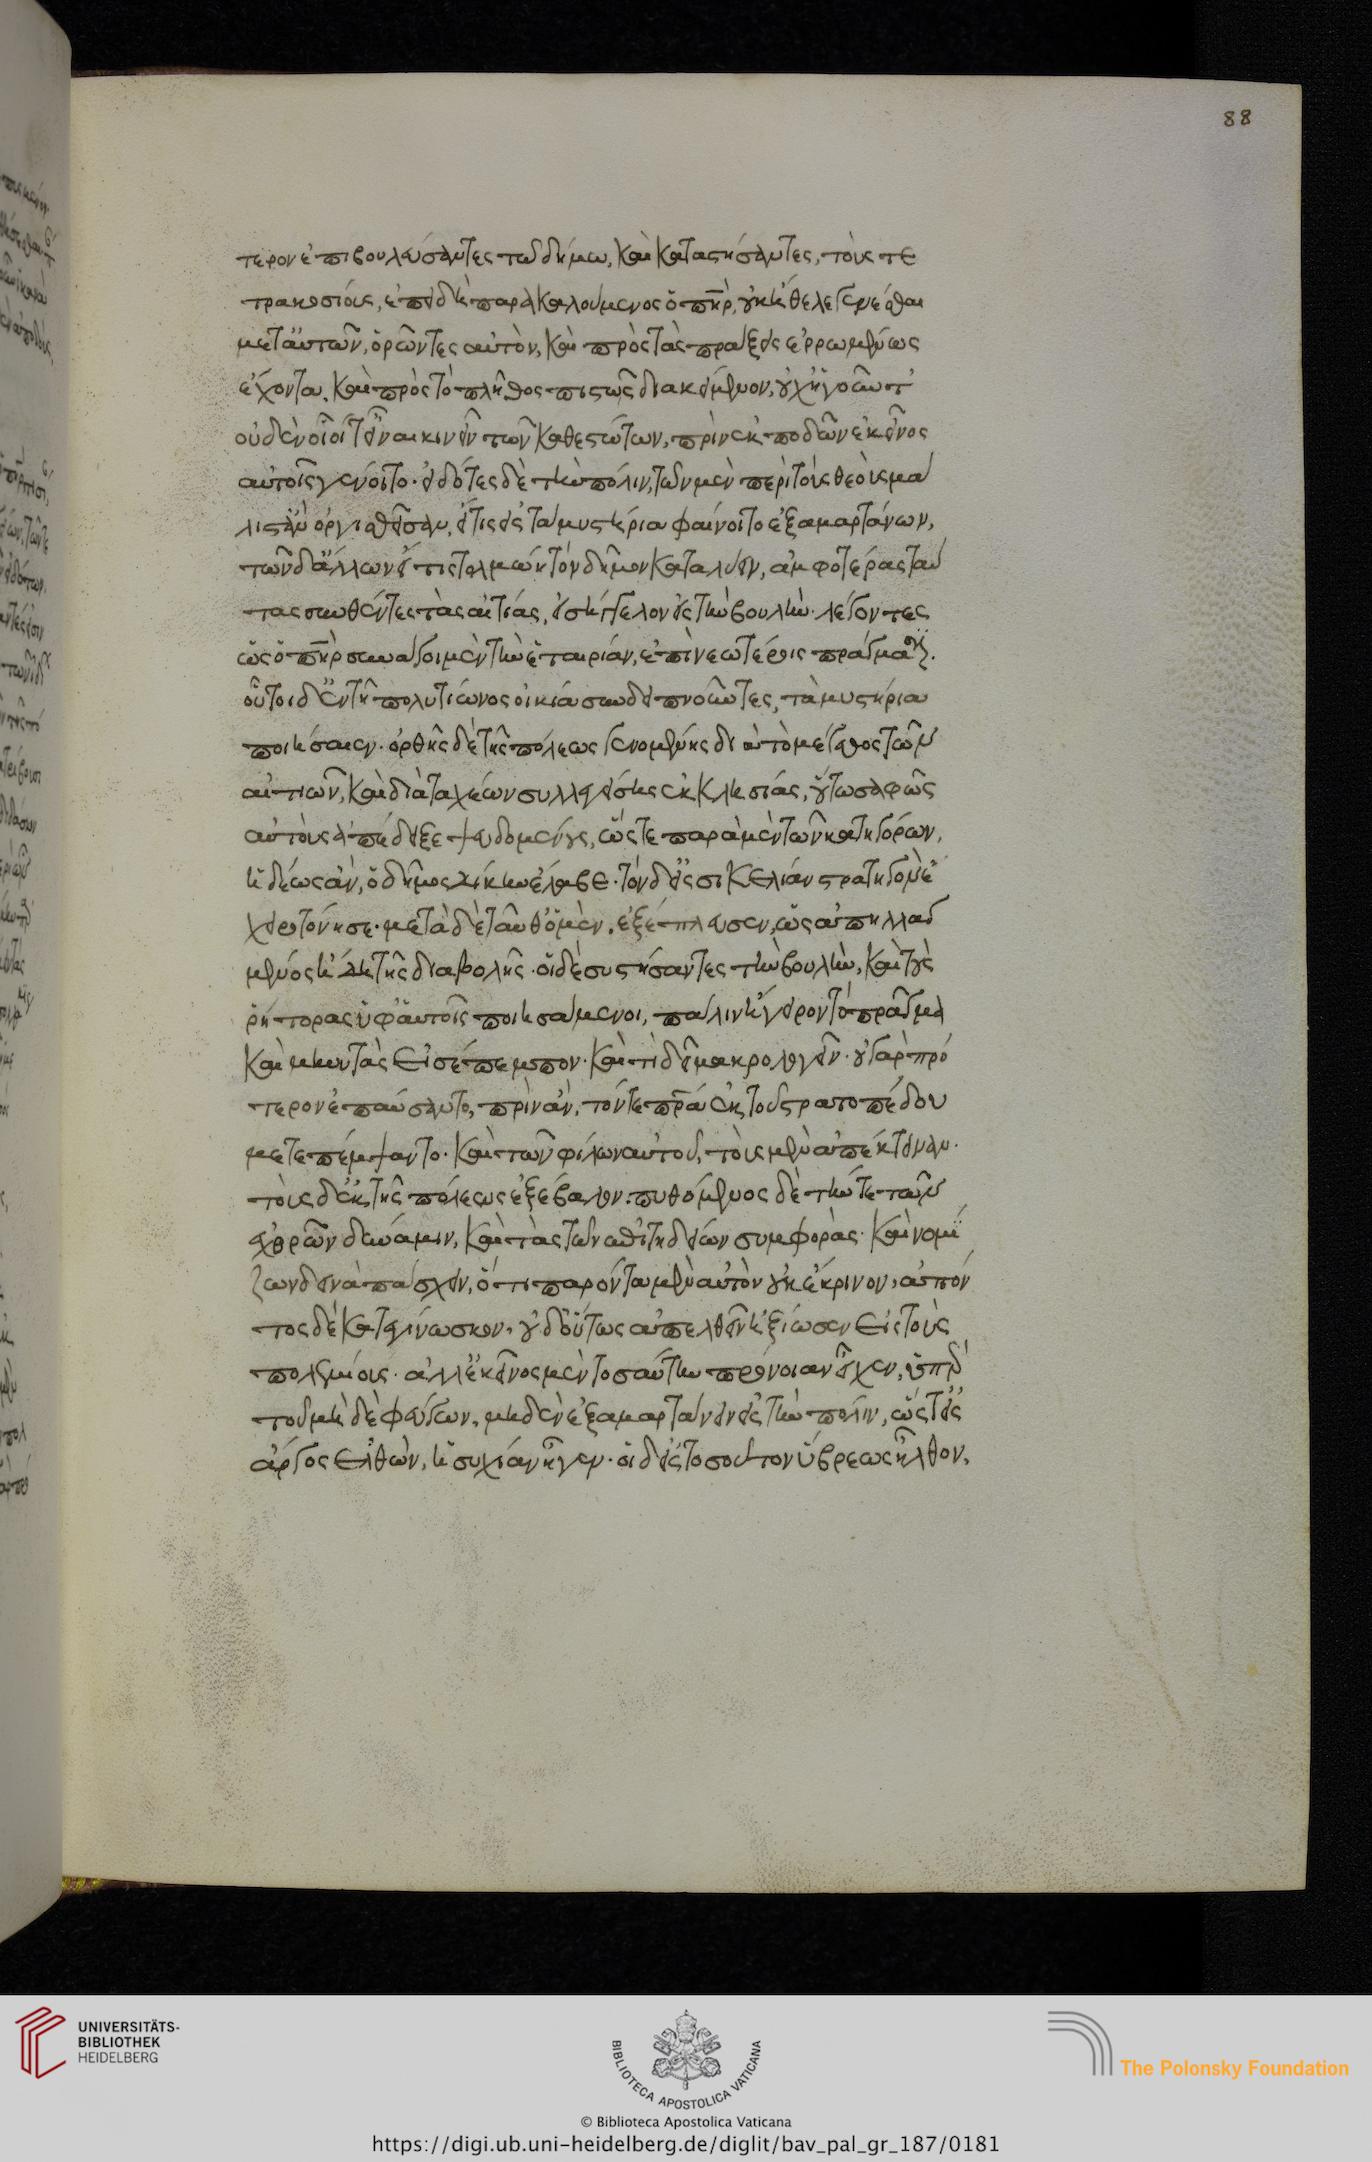 τερον ἐπιβουλεύσαντες τῶ δήμω, καὶ καταστήσαντες, τοὺς τε
τρακοσίους, ἐπειδὴ παρακαλούμενος ὁ π̅η̅ρ, οὐκ ἤθελε γενέσθαι
μετ' αὐτῶν, ὁρῶντες αὐτὸν, καὶ πρὸς τὰς πράξεις ἐρρωμένως
ἔχοντα, καὶ πρὸς τὸ πλῆθος πιστῶς διακείμενον, οὐχ ἡγοῦντ'
οὐδὲν οἷοί τ' εἶναι κινεῖν τῶν καθεστώτων, πρὶν ἐκποδῶν ἐκεῖνος
αὐτοῖς γένοιτο. εἰδότες δὲ τὴν πόλιν, τῶν μὲν περὶ τοὺς θεοὺς μά
λιστ' ἂν ὀργισθεῖσαν, εἴ τις εἰς τὰ μυστήρια φαίνοιτο ἐξαμαρτάνων,
τῶν δ' ἄλλων εἴ τις τολμώη τὸν δῆμον καταλύειν, ἀμφοτέρας ταύ
τας συνθέντες τὰς αἰτίας, εἰσήγγελον εἰς τὴν βουλὴν. λέγοντες
ὡς ὁ π̅η̅ρ συνάγοι μὲν τὴν ἑταιρίαν, ἐπὶ νεωτέροις πράγμασι.
οὗτοι δ' ἐν τῆ πολυτίωνος οἰκία συνδειπνοῦντες, τὰ μυστήρια
ποιήσαιεν. ὀρθῆς δὲ τῆς πόλεως γενομένης διὰ τὸ μέγεθος τῶν
αἰτιῶν, καὶ διὰ ταχέων συλλεγείσης ἐκκλησίας, οὕτω σαφῶς
αὐτοὺς ἀπέδειξε ψευδομένους, ὥστε παρὰ μὲν τῶν κατηγόρων,
ἡδέως ἀν, ὁ δῆμος δίκην ἔλαβε. τὸν δ' εἰς σικελίαν στρατηγὸν ἐ
χειροτόνησε. μετὰ δὲ ταῦθ' ὁ μὲν, ἐξέπλευσεν, ὡς ἀπηλλαγ
μένος ἤδη τῆς διαβολῆς. οἱ δὲ συστήσαντες τὴν βουλὴν, καὶ τοὺς
ῥήτορας ὑφ' αὑτοῖς ποιησάμενοι, πάλιν ἤγειρον τὸ πρᾶγμα
καὶ μηνυτὰς εἰσέπεμπον. καὶ τί δεῖ μακρολογεῖν. οὐ γὰρ πρό
τερον ἐπαύσαντο, πρὶν ἀν, τόν τε π̅ρ̅α ἐκ τοῦ στρατοπέδου
μετεπέμψαντο. καὶ τῶν φίλων αὐτοῦ, τοὺς μὲν ἀπέκτειναν.
τοὺς δ' ἐκ τῆς πόλεως ἐξέβαλον. πυθόμενος δὲ τήν τε τῶν
ἐχθρῶν δύναμιν, καὶ τὰς τῶν ἐπιτηδείων συμφορὰς. καὶ νομί
ζων δεινὰ πάσχειν, ὅτι παρόντα μὲν αὐτὸν οὐκ ἔκρινον, ἀπόν
τος δὲ κατεγίνωσκον, οὐδ' οὕτως ἀπελθεῖν ἠξίωσεν εἰς τοὺς
πολεμίους. ἀλλ' ἐκεῖνος μὲν τοσαύτην πρόνοιαν εἶχεν, ὑπὲρ
τοῦ μηδὲ φεύγων, μηδὲν ἐξαμαρτάνειν εἰς τὴν πόλιν, ὥστ' εἰς
ἄργος ἐλθὼν, ἡσυχίαν ἦγεν. οἱ δ' εἰς τοσοῦτον ὕβρεως ἦλθον,
88
UNIVERSITÄTS-
BIBLIOTHEK
HEIDELBERG
BIBLIOTECA APOSTOLICA VATICANA
© Biblioteca Apostolica Vaticana
The Polonsky Foundation
https://digi.ub.uni-heidelberg.de/diglit/bav_pal_gr_187/0181